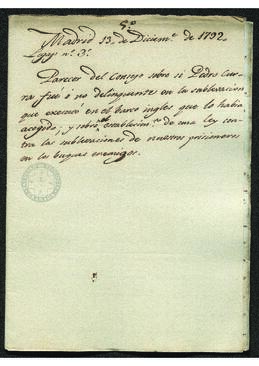 5.º
Madrid 13. de Diciem.e de 1792.
Legajo n.º 3.º
Parecer del Consejo sobre si Pedro
fué ó no delinquente en la sublevacion
que executó en el barco ingles que lo habia
acogido; y sobre establecim.to de una ley con
tra las sublevaciones de nuestros prisioneros
en los buques enemigos.